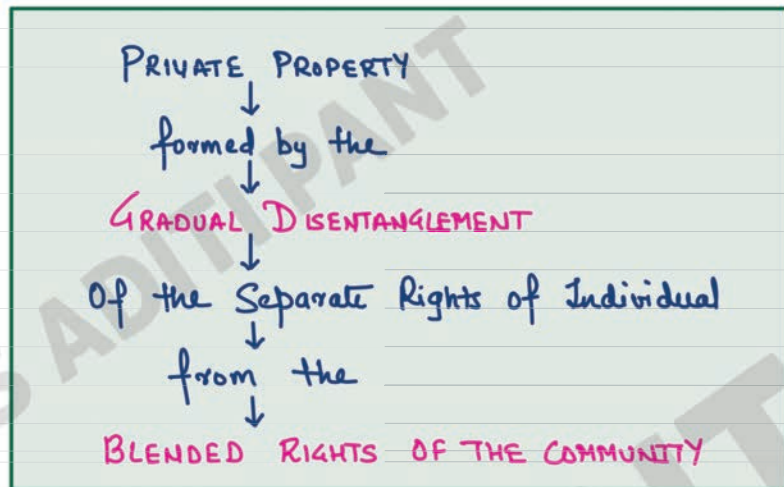 PRIVATE PROPERTY
↓
formed by the
↓
GRADUAL DISENTANGLEMENT
↓
Of the Separate Rights of Individual
↓
from the
↓
BLENDED RIGHTS OF THE COMMUNITY
S ADITI PANT
IT